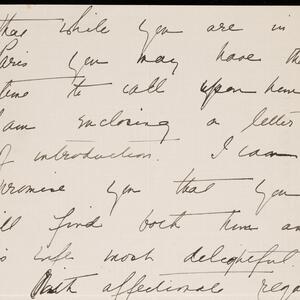 that while you are in
Paris you may have the
time to call upon him
I am enclosing a letter
of introduction. I can
promise you that you
will find both him and
his wife most delightful.
With affectionate rega